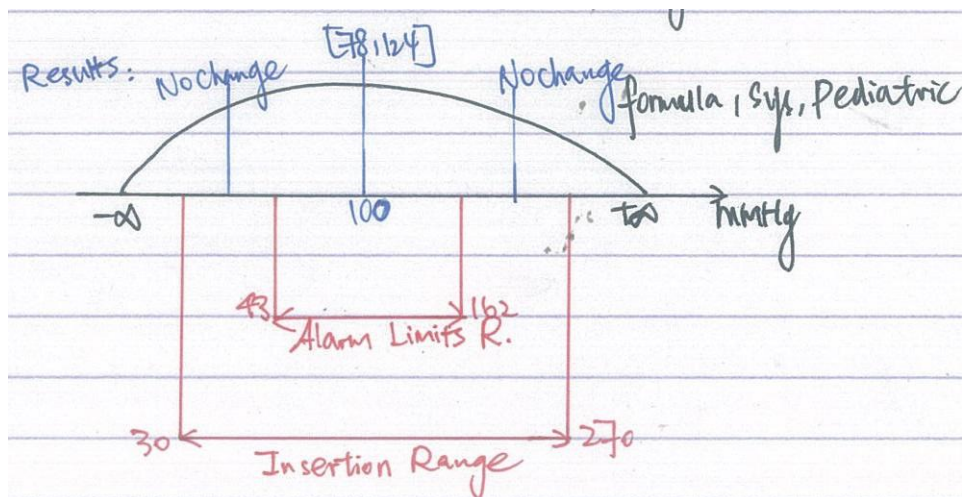 [78,124]
Results:
No change
No change
formula, Sys, Pediatric
-∞
100
+∞
mmHg
43
162
Alarm Limits R.
30
270
Insertion Range